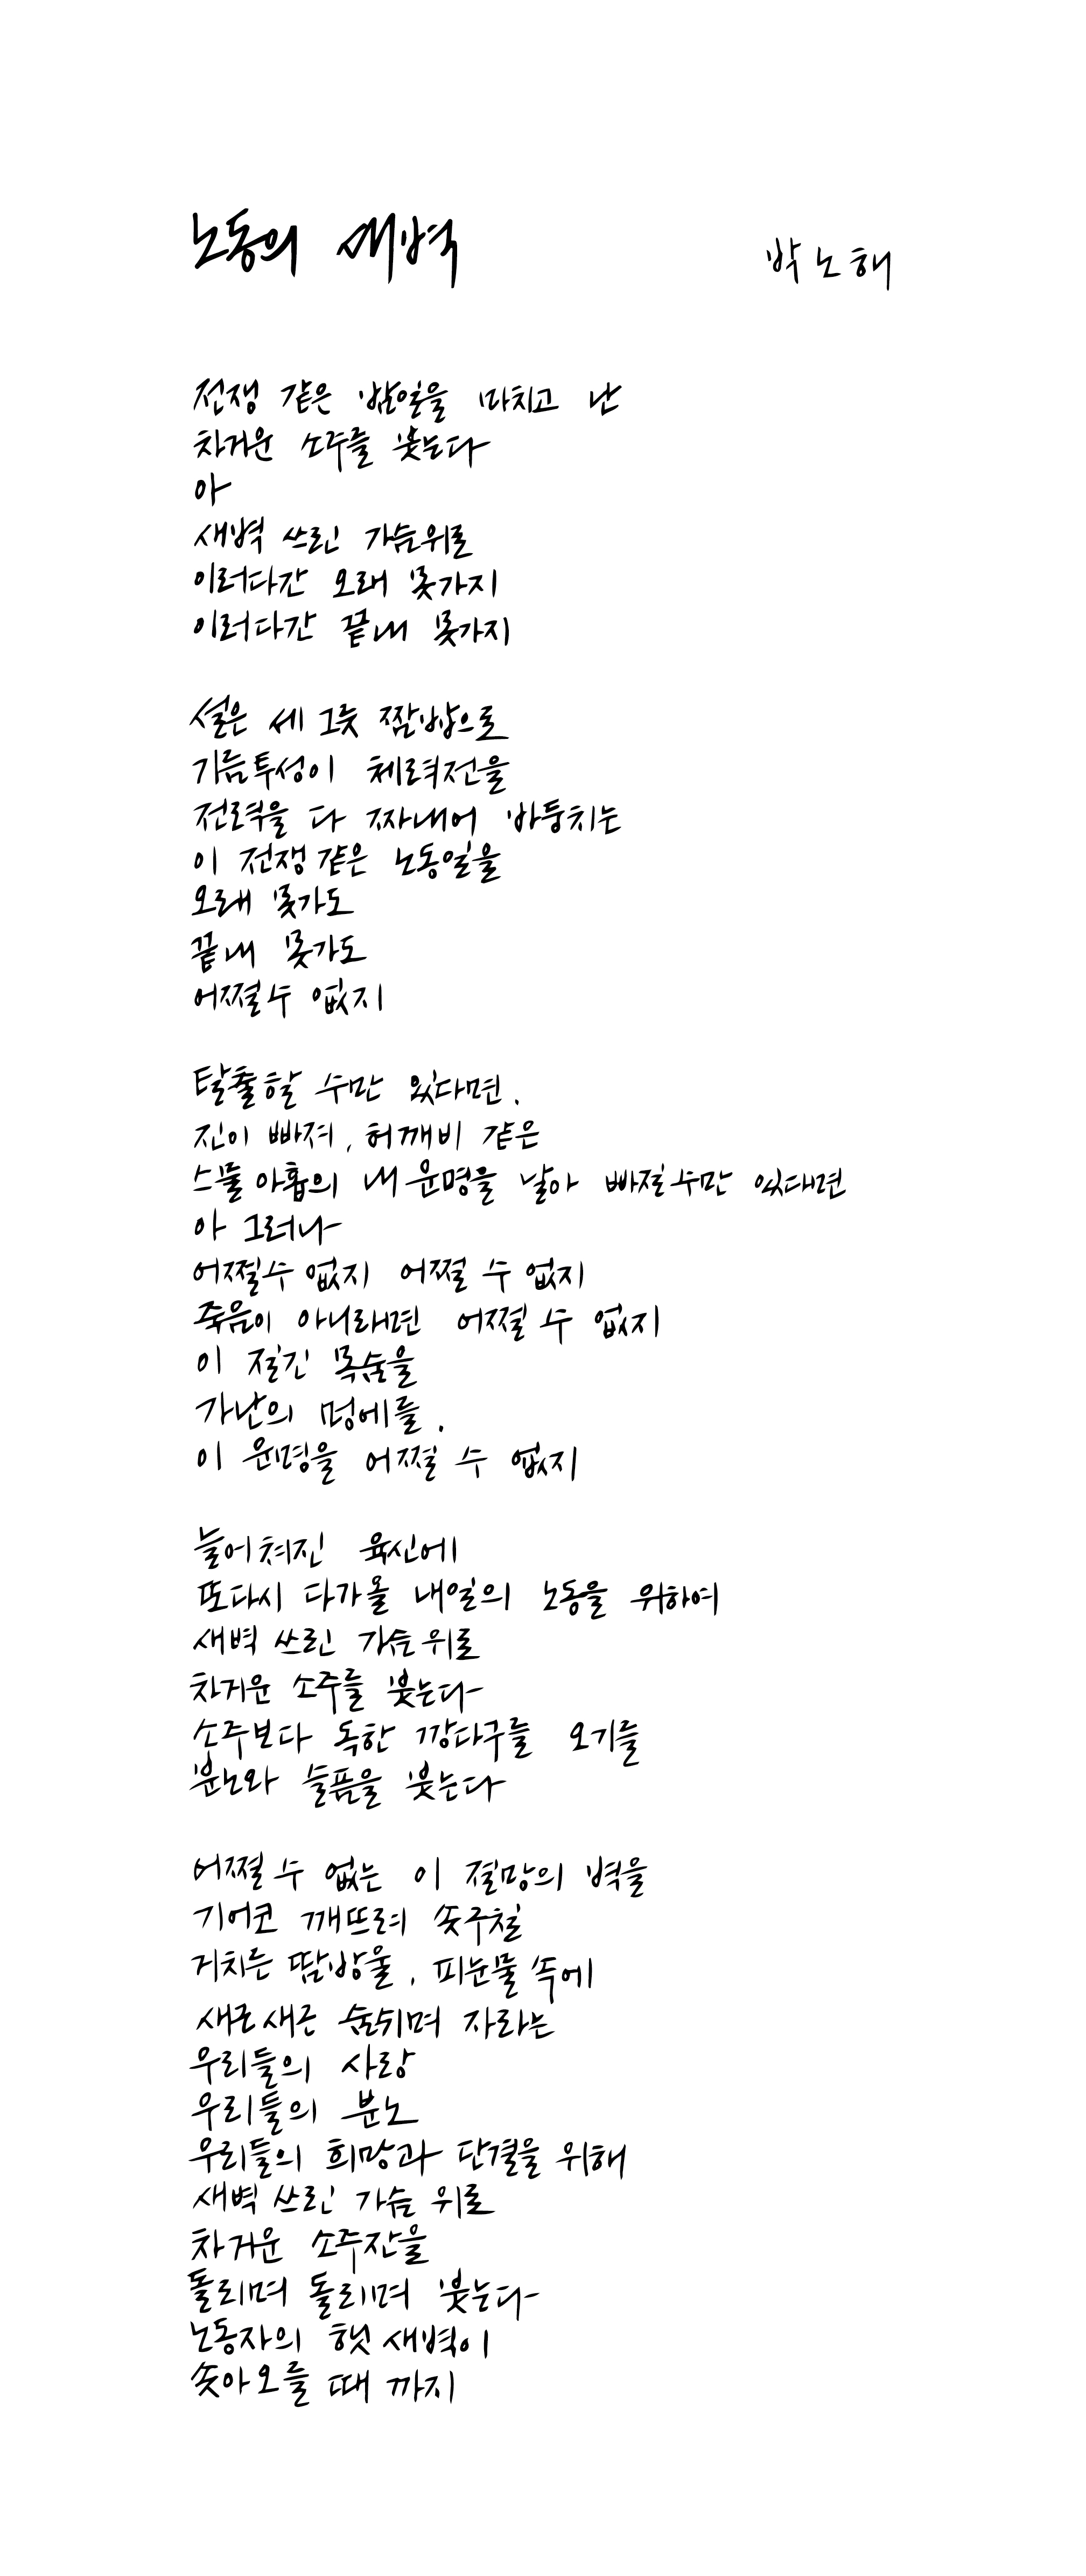 노동의 새벽
박노해
전쟁 같은 밤일을 마치고 난
차거운 소주를 붓는다
아
새벽 쓰린 가슴위로
이러다간 오래 못가지
이러다간 끝내 못가지
설은 세 그릇 짬밥으로
기름투성이 체력전을
전력을 다 짜내어 바둥치는
이 전쟁 같은 노동일을
오래 못가도
끝내 못가도
어쩔수 없지
탈출할 수만 있다면,
진이 빠져, 허깨비 같은
스물 아홉의 내 운명을 날아 빠질수만 있대면
아 그러나
어쩔수 없지 어쩔 수 없지
죽음이 아니래면 어쩔 수 없지
이 질긴 목숨을
가난의 멍에를,
이 운명을 어쩔 수 없지
늘어쳐진 육신에
또다시 다가올 내일의 노동을 위하여
새벽 쓰린 가슴 위로
차거운 소주를 붓는다
소주보다 독한 깡다구를 오기를
분노와 슬픔을 붓는다
어쩔 수 없는 이 절망의 벽을
기어코 깨뜨려 솟구칠
거치른 땀방울, 피눈물 속에
새근새근 숨쉬며 자라는
우리들의 사랑
우리들의 분노
우리들의 희망과 단결을 위해
새벽 쓰린 가슴 위로
차거운 소주잔을
돌리며 돌리며 붓는다
노동자의 햇새벽이
솟아오를 때 까지